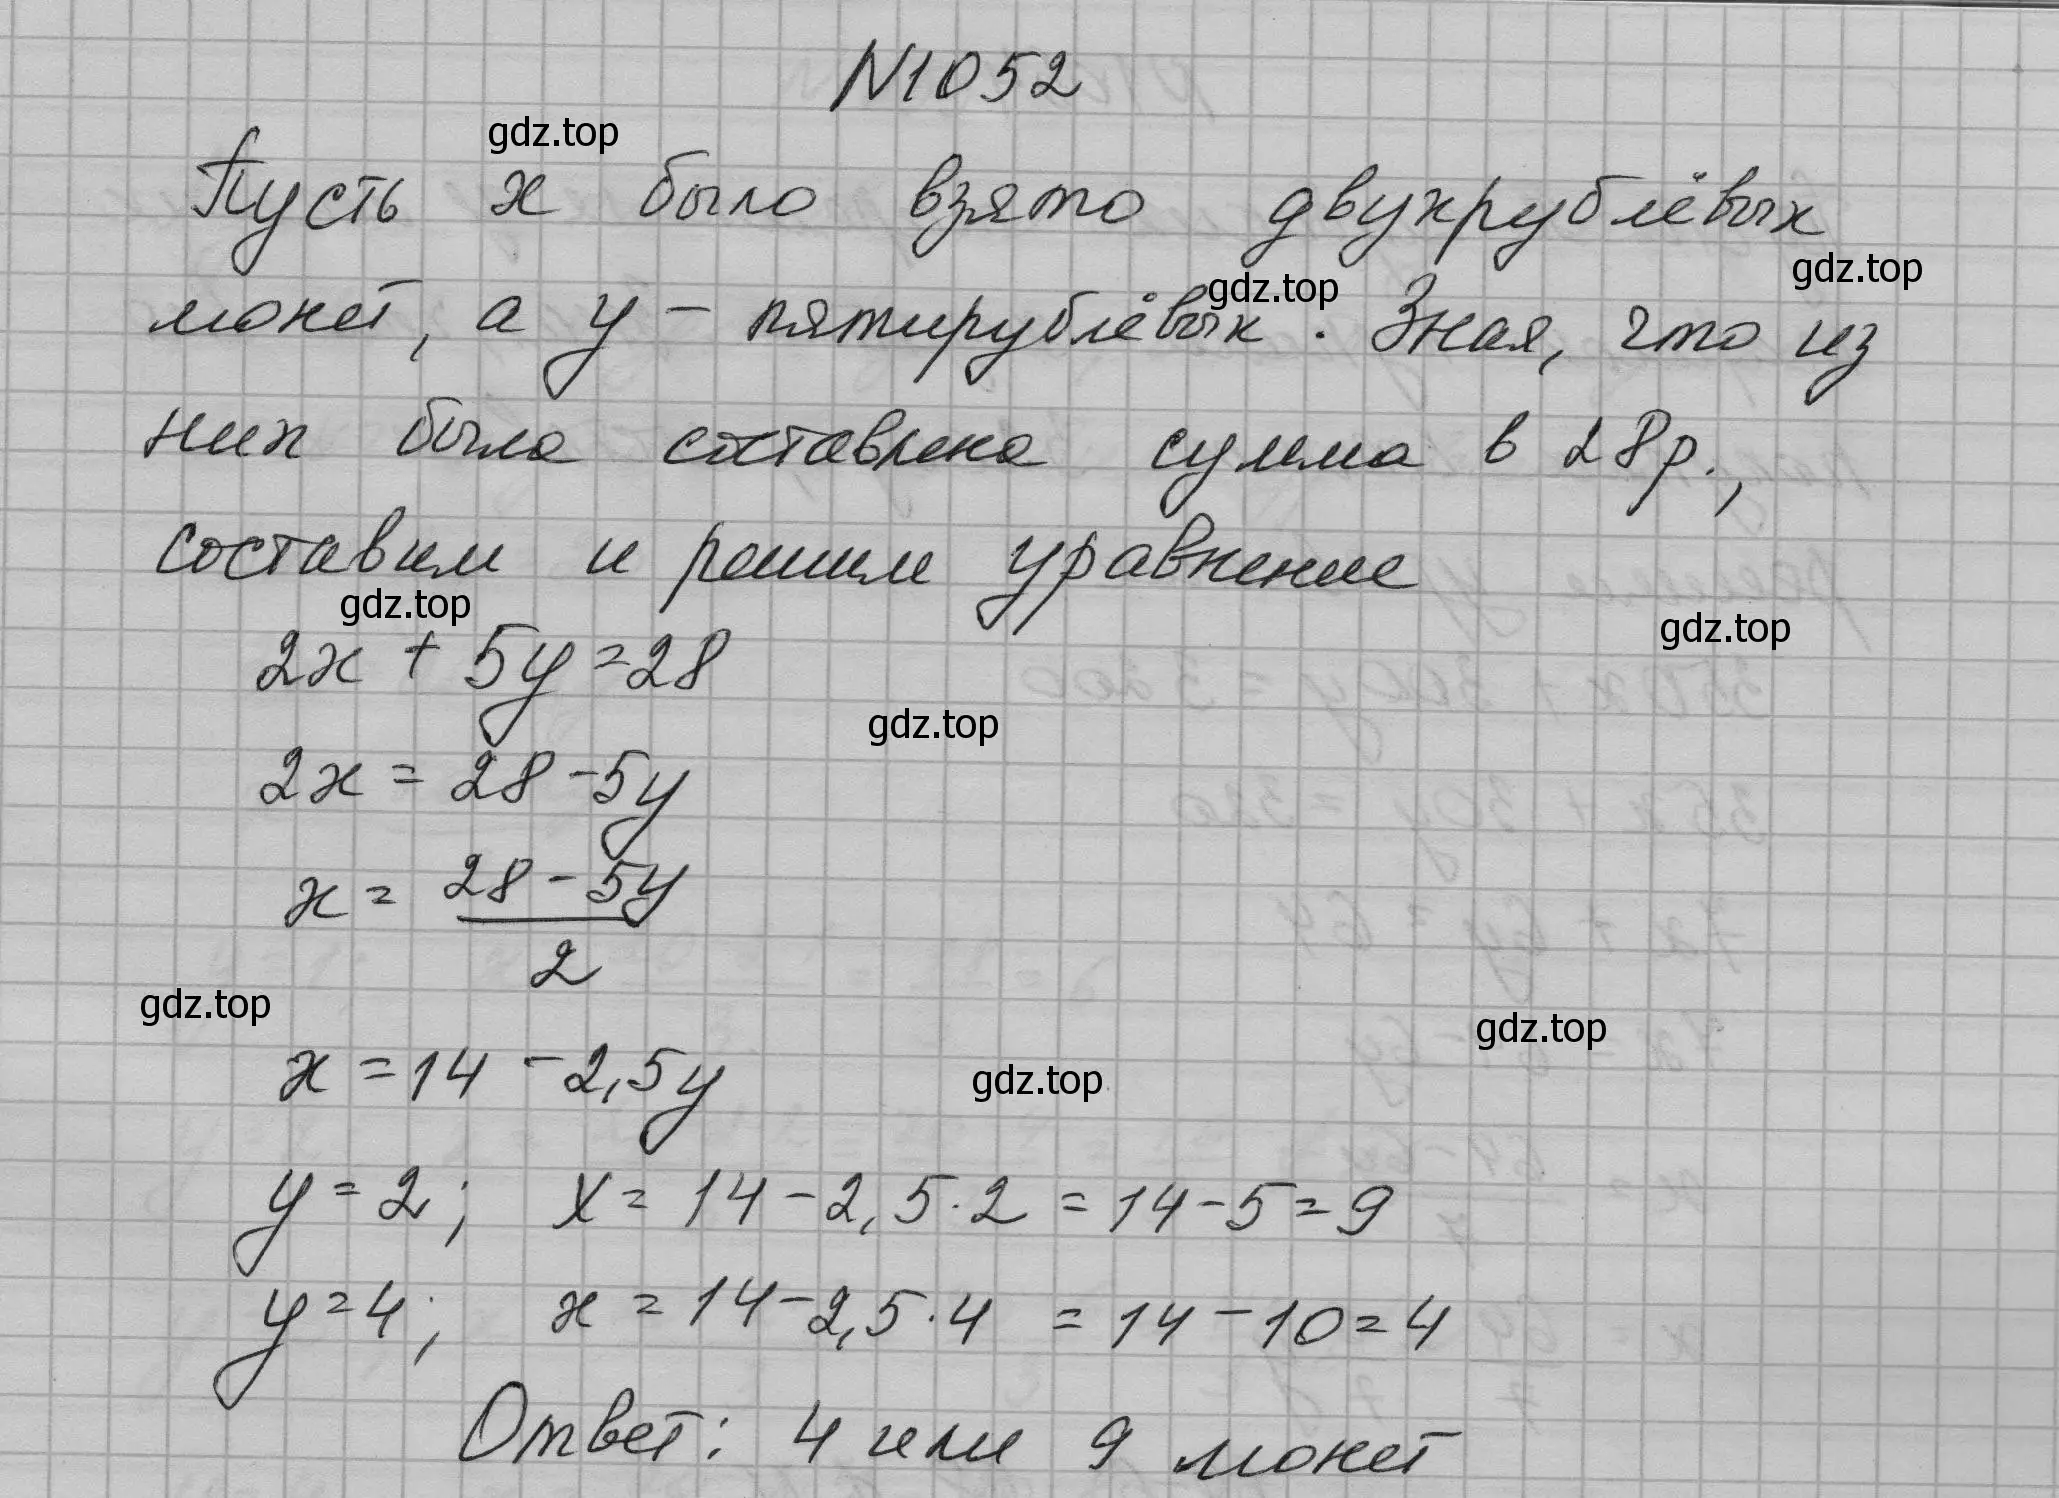 N1052
gdz.top
Пусть x было взято двухрублёвых
gdz.top
gdz.top
монет, а y - пятирублёвых. Зная, что из
них была составлена сумма в 28 р.,
составим и решим уравнение
gdz.top
gdz.top
2x + 5y = 28
gdz.top
2x = 28 - 5y
x = 28 - 5y
2
gdz.top
gdz.top
x = 14 - 2,5y
gdz.top
y = 2; x = 14 - 2,5 · 2 = 14 - 5 = 9
y = 4; x = 14 - 2,5 · 4 = 14 - 10 = 4
Ответ: 4 или 9 монет